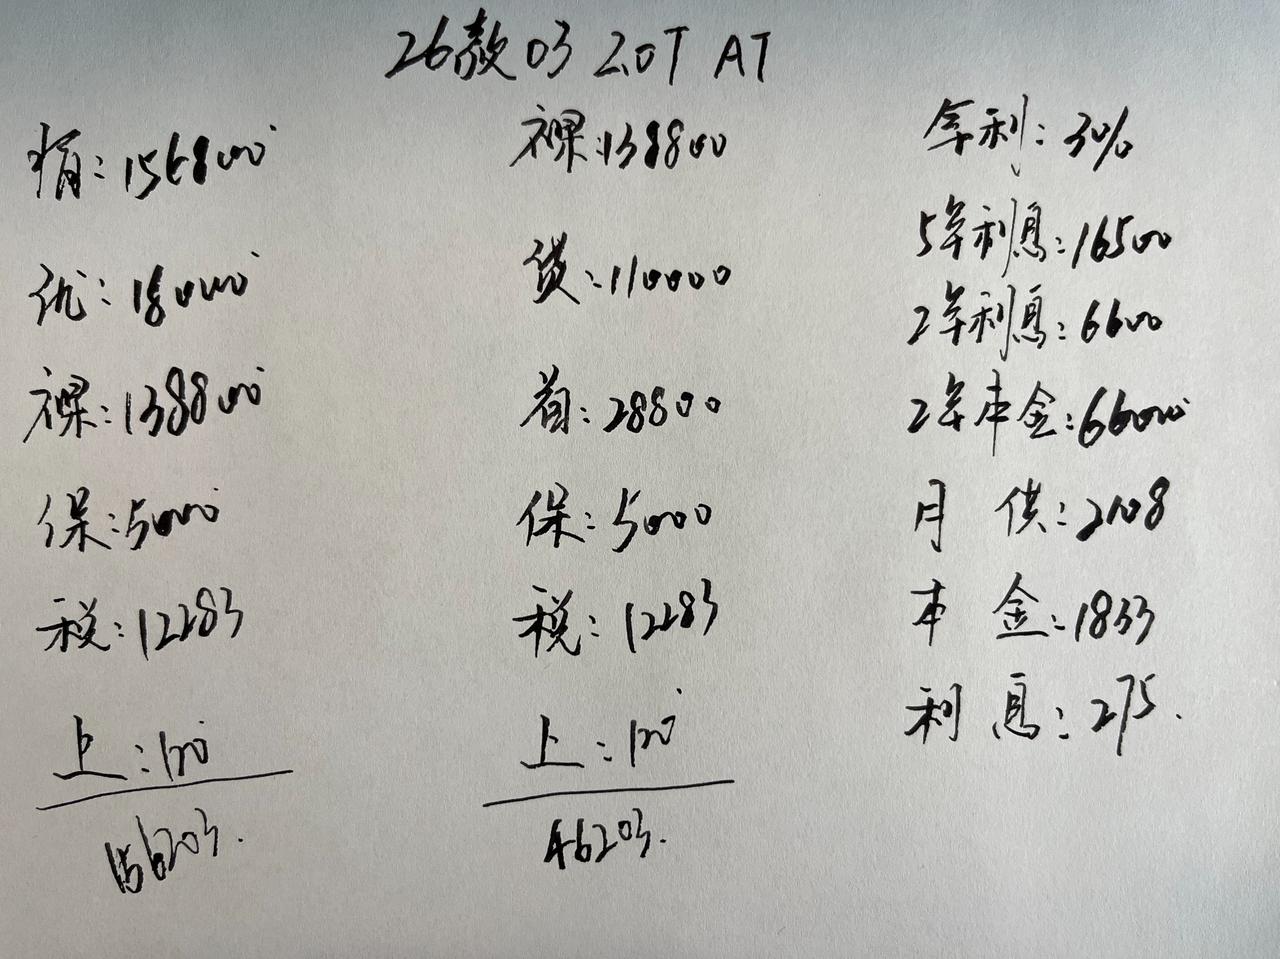 26款 03 2.0T AT
指: 156800
优: 18000
裸: 138800
保: 5000
税: 12283
上: 120
156203.
裸: 138800
贷: 110000
首: 28800
保: 5000
税: 12283
上: 120
46203.
年利: 3%
5年利息: 16500
2年利息: 6600
2年本金: 66000
月 供: 2108
本 金: 1833
利 息: 275.